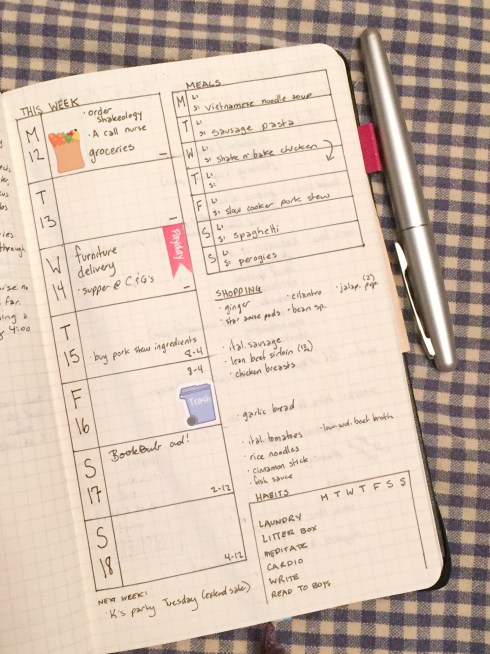 THIS WEEK
M
12
· order
Shakeology
· A call nurse
groceries
T
13
W
14
furniture
delivery
· supper @ C & G's
Payday
T
15
· buy pork stew ingredients
8-4
F
16
8-4
Trash
S
17
BookBub ad!
2-12
S
18
4-12
NEXT WEEK:
· K's party Tuesday (extend sale)
MEALS
M
L:
S: Vietnamese noodle soup
T
L:
S: sausage pasta
W
L:
S: shake n' bake chicken
T
L:
S:
F
L:
S: slow cooker pork stew
S
L:
S: spaghetti
S
L:
S: perogies
SHOPPING
· ginger
· cilantro
· jalap. pepp (2)
· star anise pods
· bean sp.
· ital. sausage
· lean beef sirloin (1½)
· chicken breasts
· garlic bread
· ital. tomatoes
· low-sod. beef broth
· rice noodles
· cinnamon stick
· fish sauce
HABITS
M T W T F S S
LAUNDRY
LITTER BOX
MEDITATE
CARDIO
WRITE
READ TO BOYS
through
far.
4:00